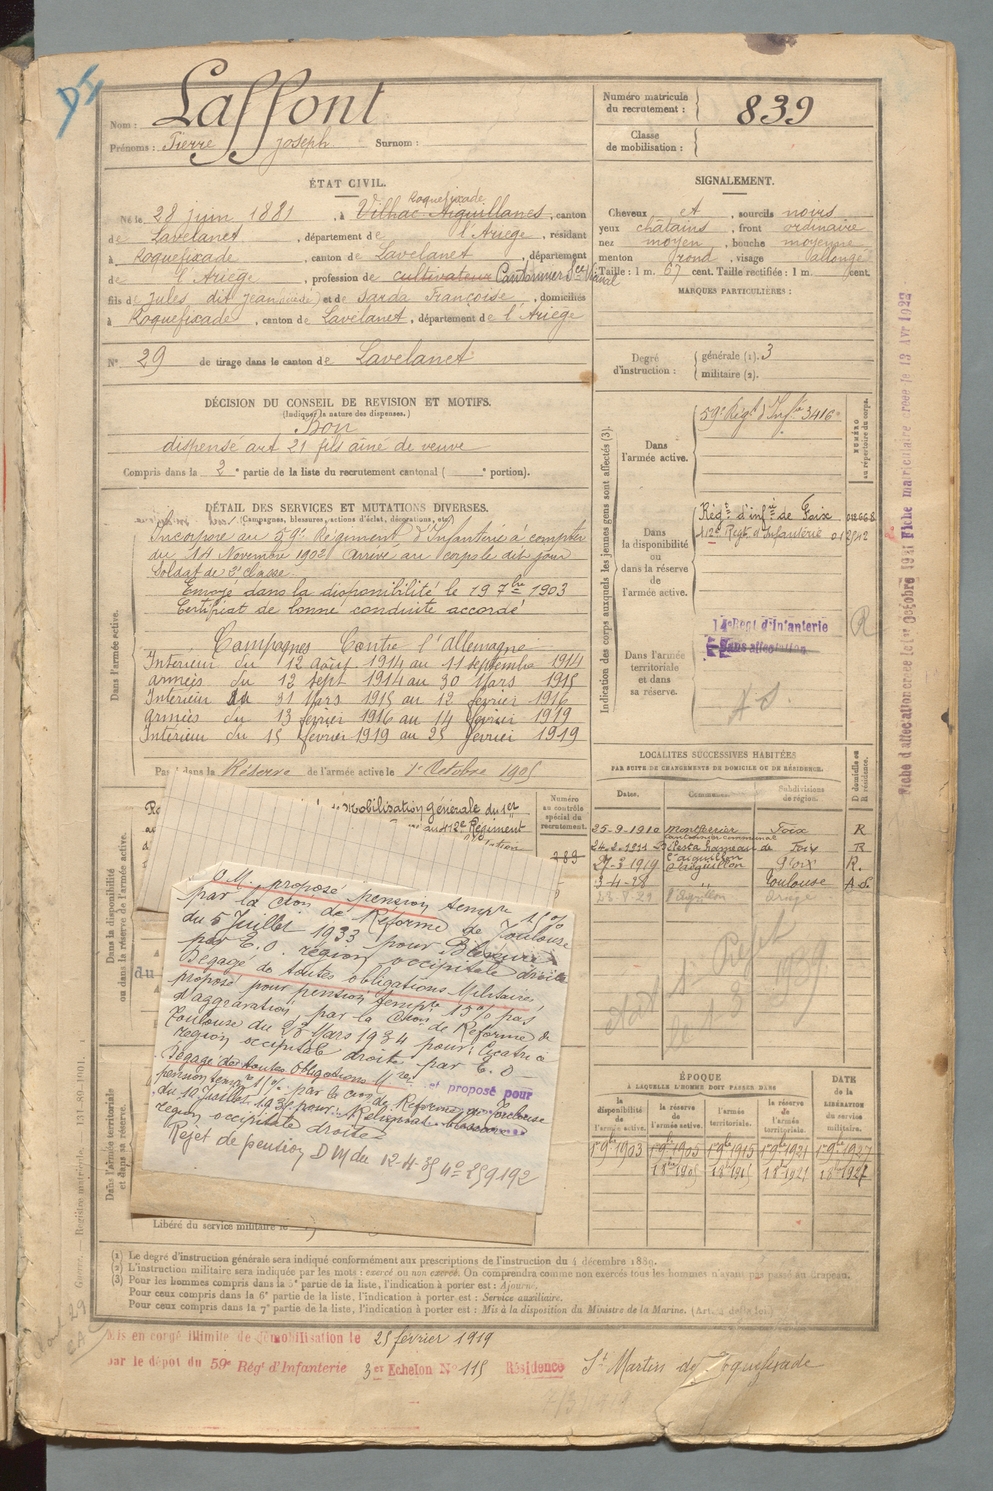 Nom : Laffont
Prénoms : Pierre Joseph Surnom :
Numéro matricule du recrutement : 839
Classe de mobilisation :
ÉTAT CIVIL.
Roquefixade
Né le 28 juin 1881, à Vilhac Aiguillanes, canton
de Lavelanet, département de l'Ariège, résidant
à Roquefixade, canton de Lavelanet, département
de l'Ariège, profession de cultivateur Cantonnier
fils de Jules, dit Jean et de Sarda Françoise, domiciliés
à Roquefixade, canton de Lavelanet, département de l'Ariège
N° 29 de tirage dans le canton de Lavelanet
SIGNALEMENT.
Cheveux et, sourcils noirs
yeux châtains, front ordinaire
nez moyen, bouche moyenne
menton rond, visage allongé
Taille : 1 m. 67 cent. Taille rectifiée : 1 m. cent.
MARQUES PARTICULIÈRES :
Degré d'instruction : générale (1). 3
militaire (2).
DÉCISION DU CONSEIL DE REVISION ET MOTIFS.
(Indiquer la nature des dispenses.)
Bon
dispensé art 21 fils aîné de veuve
Compris dans la 2e partie de la liste du recrutement cantonal ( e portion).
DÉTAIL DES SERVICES ET MUTATIONS DIVERSES.
(Campagnes, blessures, actions d'éclat, décorations, etc.)
Incorporé au 59e Régiment d'Infanterie à compter
du 14 Novembre 1902 Arrivé au corps le dit jour
Soldat de 2e classe
Envoyé dans la disponibilité le 19 7bre 1903
Certificat de bonne conduite accordé
Campagnes Contre l'Allemagne
Intérieur du 12 août 1914 au 11 septembre 1914
armées du 12 sept 1914 au 30 Mars 1915
Intérieur du 31 Mars 1915 au 12 février 1916
armées du 13 février 1916 au 14 février 1919
Intérieur du 15 février 1919 au 25 février 1919
Passé dans la Réserve de l'armée active le 1er Octobre 1905
Dans l'armée active.
Dans la disponibilité ou dans la réserve de l'armée active.
Dans l'armée territoriale et dans sa réserve.
Mobilisation générale du 1er
au 412e Régiment
Numéro au contrôle spécial du recrutement.
du
O.M. proposé pension tempre
par la Cion de Réforme de Toulouse
du 5 Juillet 1933 pour Blessure
par E.O. région occipitale droite
Dégagé de toutes obligations Militaires
proposé pour pension tempre 15% pas
d'aggravation, par la Cion de Réforme de
Toulouse du 23 Mars 1934 pour: Cicatrice
région occipitale droite par E.O
Dégagé de toutes Obligations Mres et proposé pour
pension tempre par la Cion de Réforme de Toulouse
région occipitale droite
Rejet de pension D M du 12-4-35 no 259192
Libéré du service militaire le
Indication des corps auxquels les jeunes gens sont affectés (3).
Dans l'armée active.
59e Régt d'Infie 3416
NUMÉRO au répertoire du corps.
Dans la disponibilité ou dans la réserve de l'armée active.
Régt d'infie de Foix
412e Régt d'Infanterie
Dans l'armée territoriale et dans sa réserve.
14e Regt d'Infanterie
Sans affectation
A S.
R
LOCALITÉS SUCCESSIVES HABITÉES
PAR SUITE DE CHANGEMENTS DE DOMICILE OU DE RÉSIDENCE.
Dates. Communes. Subdivisions de région. D domicile ou R résidence.
25-9-1910 Montferrier Foix R
cantonnier communal
24-2-1911 hameau de Foix R
27-3-1919 l'aiguillon Foix R.
3-4-28 " Toulouse
l'aiguillon
ÉPOQUE
À LAQUELLE L'HOMME DOIT PASSER DANS
la disponibilité de l'armée active. la réserve de l'armée active. l'armée territoriale. la réserve de l'armée territoriale. DATE de la LIBÉRATION du service militaire.
1er 9bre 1903 1er 9bre 1905 1er 9bre 1915 1er 9bre 1921 1er 9bre 1927
1er 8bre 1905 1er 8bre 1915 1er 8bre 1921 1er 8bre 1927
(1) Le degré d'instruction générale sera indiqué conformément aux prescriptions de l'instruction du 4 décembre 1889.
(2) L'instruction militaire sera indiquée par les mots : exercé ou non exercé. On comprendra comme non exercés tous les hommes n'ayant pas passé au drapeau.
(3) Pour les hommes compris dans la 5e partie de la liste, l'indication à porter est : Ajourné.
Pour ceux compris dans la 6e partie de la liste, l'indication à porter est : Service auxiliaire.
Pour ceux compris dans la 7e partie de la liste, l'indication à porter est : Mis à la disposition du Ministre de la Marine.
Mis en congé illimité de démobilisation le 25 février 1919
par le dépôt du 59e Régt d'Infanterie 3er Echelon N° 115 Résidence St Martin de Roquefixade
Registre matricule. 131-89-1901.
Fiche d'affectation créée le 1er Octobre 1921 Fiche matriculaire créée le 13 Avr 1922